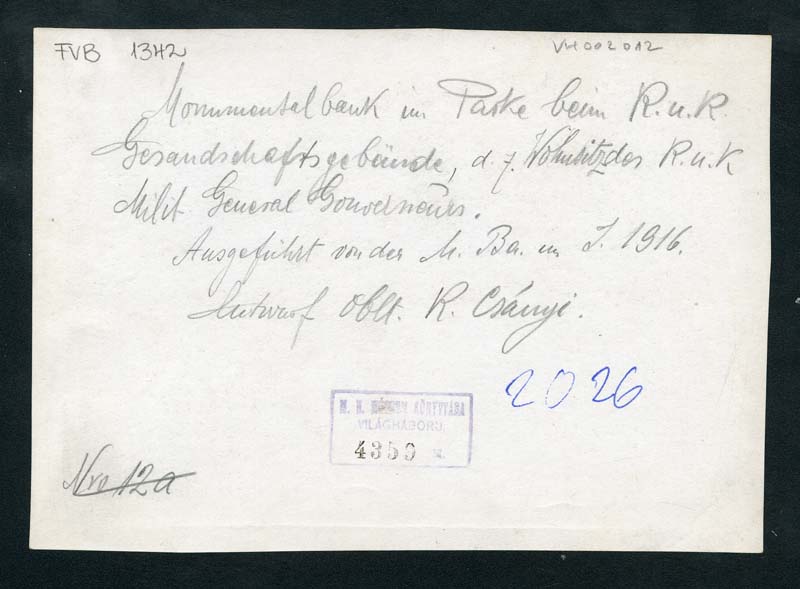 FVB 1342
VH002012
Monumentalbank im Parke beim K.u.K.
Gesandschaftsgebäude, d. z. Wohnsitz des K.u.K
Milit. General Gouverneurs.
Ausgeführt von der M. Ba. im J. 1916.
Entwurf Oblt. K. Csányi.
2026
M. N. MÚZEUM KÖNYVTÁRA
VILÁGHÁBORÚ
4359 sz.
Nro 12a